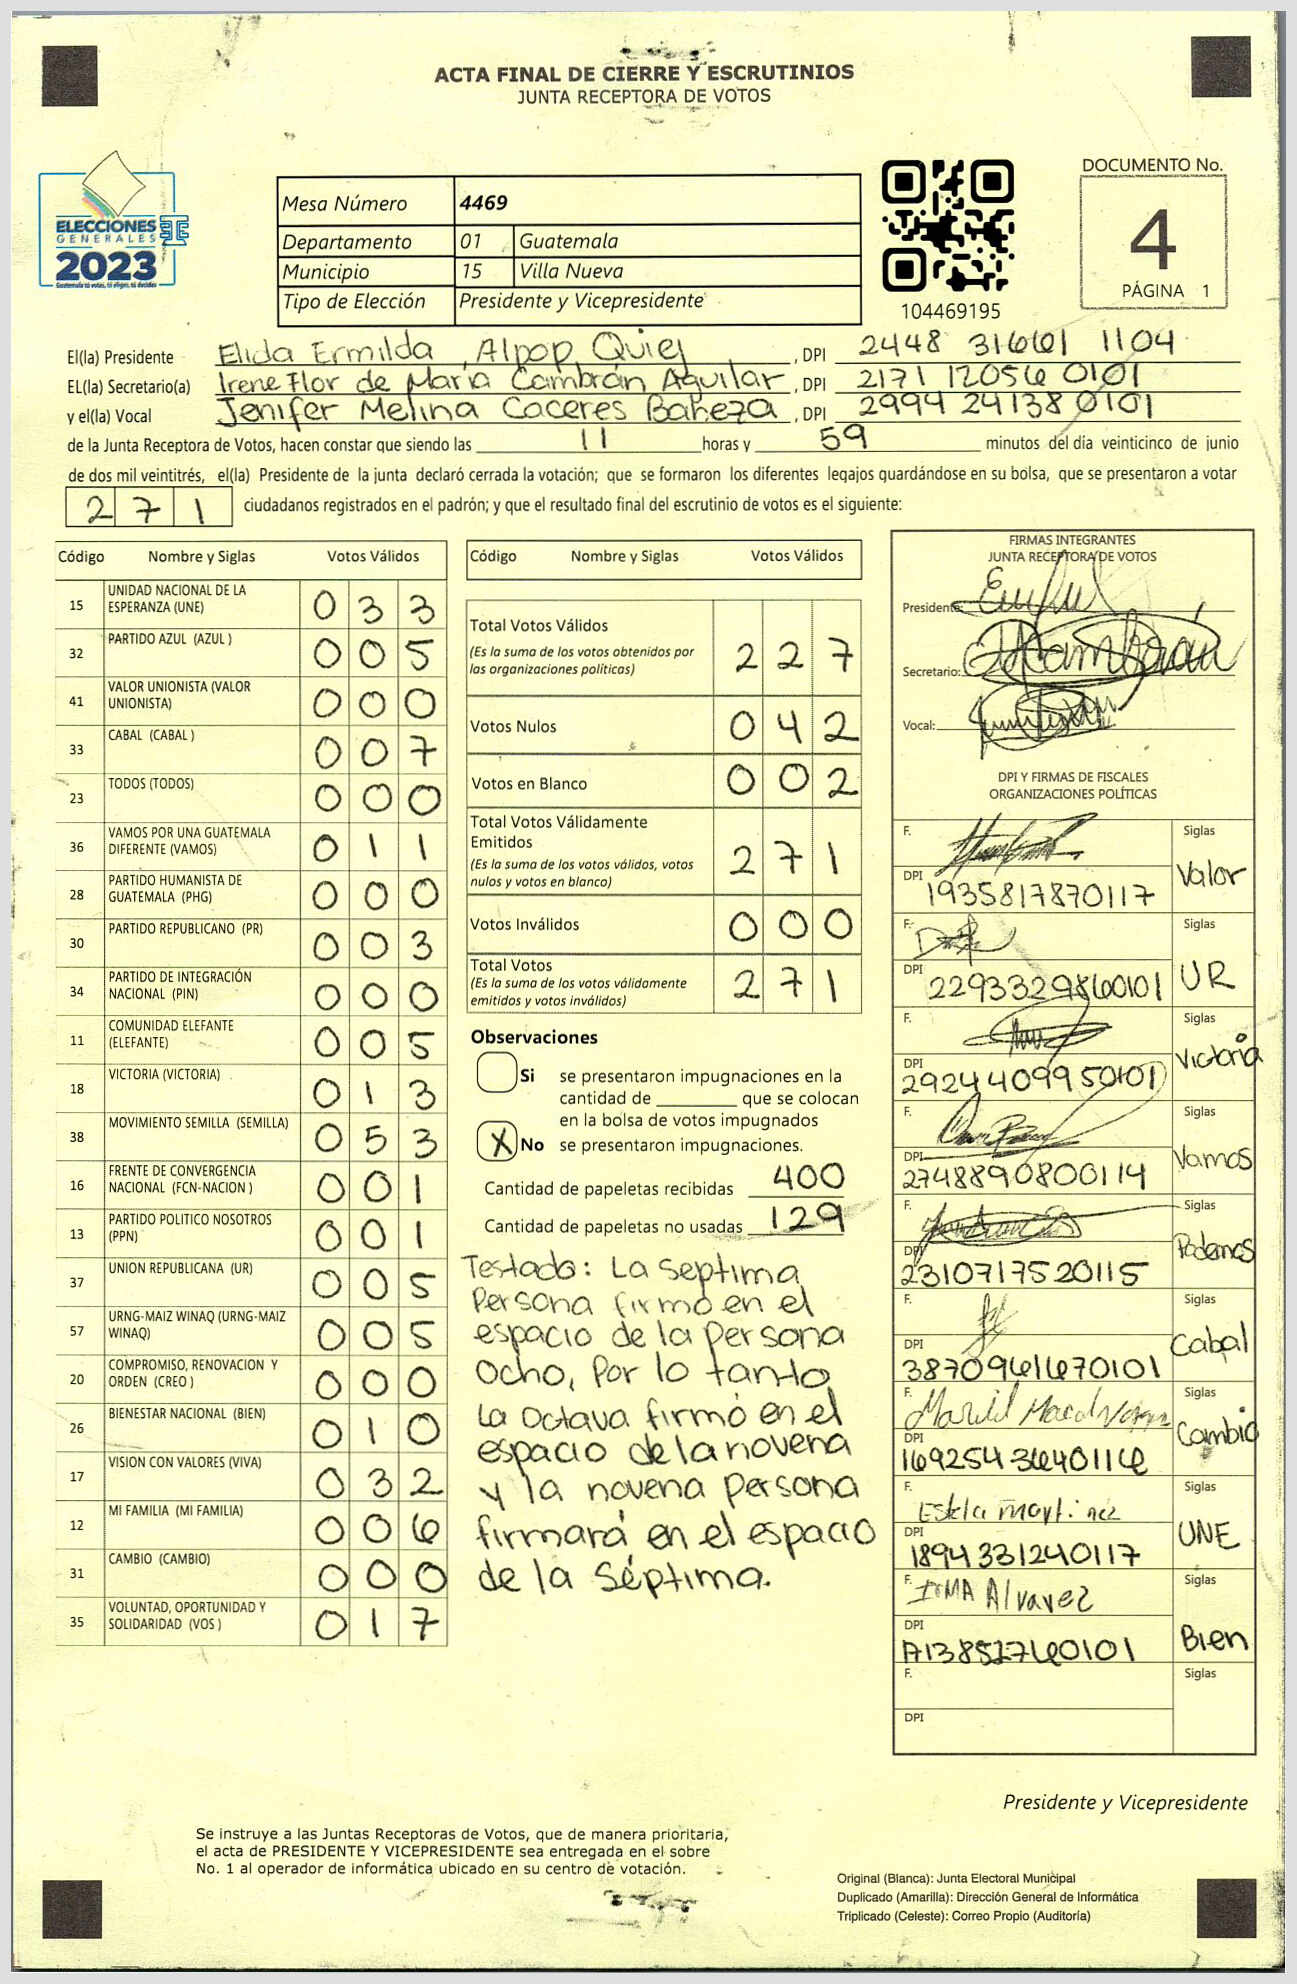 ACTA FINAL DE CIERRE Y ESCRUTINIOS
JUNTA RECEPTORA DE VOTOS
DOCUMENTO No.
4
PÁGINA 1
ELECCIONES
GENERALES
2023
Guatemala tú votas, tú eliges, tú decides
Mesa Número 4469
Departamento 01 Guatemala
Municipio 15 Villa Nueva
Tipo de Elección Presidente y Vicepresidente
104469195
El(la) Presidente Elida Ermilda Alpop Quiej, DPI 2448 31661 1104
EL(la) Secretario(a) Irene Flor de María Cambrán Aguilar, DPI 2171 12056 0101
y el(la) Vocal Jenifer Melina Caceres, DPI 2994 24138 0101
de la Junta Receptora de Votos, hacen constar que siendo las 11 horas y 59 minutos del día veinticinco de junio
de dos mil veintitrés, el(la) Presidente de la junta declaró cerrada la votación; que se formaron los diferentes legajos guardándose en su bolsa, que se presentaron a votar
271 ciudadanos registrados en el padrón; y que el resultado final del escrutinio de votos es el siguiente:
Código Nombre y Siglas Votos Válidos
15 UNIDAD NACIONAL DE LA ESPERANZA (UNE) 033
32 PARTIDO AZUL (AZUL ) 005
41 VALOR UNIONISTA (VALOR UNIONISTA) 000
33 CABAL (CABAL ) 007
23 TODOS (TODOS) 000
36 VAMOS POR UNA GUATEMALA DIFERENTE (VAMOS) 011
28 PARTIDO HUMANISTA DE GUATEMALA (PHG) 000
30 PARTIDO REPUBLICANO (PR) 003
34 PARTIDO DE INTEGRACIÓN NACIONAL (PIN) 000
11 COMUNIDAD ELEFANTE (ELEFANTE) 005
18 VICTORIA (VICTORIA) 013
38 MOVIMIENTO SEMILLA (SEMILLA) 053
16 FRENTE DE CONVERGENCIA NACIONAL (FCN-NACION ) 001
13 PARTIDO POLITICO NOSOTROS (PPN) 001
37 UNION REPUBLICANA (UR) 005
57 URNG-MAIZ WINAQ (URNG-MAIZ WINAQ) 005
20 COMPROMISO, RENOVACION Y ORDEN (CREO ) 000
26 BIENESTAR NACIONAL (BIEN) 010
17 VISION CON VALORES (VIVA) 032
12 MI FAMILIA (MI FAMILIA) 006
31 CAMBIO (CAMBIO) 000
35 VOLUNTAD, OPORTUNIDAD Y SOLIDARIDAD (VOS ) 017
Código Nombre y Siglas Votos Válidos
Total Votos Válidos 227
(Es la suma de los votos obtenidos por
las organizaciones políticas)
Votos Nulos 042
Votos en Blanco 002
Total Votos Válidamente
Emitidos 271
(Es la suma de los votos válidos, votos
nulos y votos en blanco)
Votos Inválidos 000
Total Votos 271
(Es la suma de los votos válidamente
emitidos y votos inválidos)
Observaciones
Si se presentaron impugnaciones en la
cantidad de ________ que se colocan
en la bolsa de votos impugnados
X No se presentaron impugnaciones.
Cantidad de papeletas recibidas 400
Cantidad de papeletas no usadas 129
Testado: La Septima
Persona firmó en el
espacio de la Persona
Ocho, Por lo tanto
La Octava firmó en el
espacio de la novena
y la novena Persona
firmará en el espacio
de la Séptima.
FIRMAS INTEGRANTES
JUNTA RECEPTORA DE VOTOS
Presidente:
Secretario:
Vocal:
DPI Y FIRMAS DE FISCALES
ORGANIZACIONES POLÍTICAS
F. Siglas
DPI 1935817870117 Valor
F. Siglas
DPI 2293329860101 UR
F. Siglas
DPI 2924409950101 Victoria
F. Siglas
DPI 2748890800114 Vamos
F. Siglas
DPI 2310717520115 Podemos
F. Siglas
DPI 3870961670101 Cabal
F. Siglas
DPI 1692543640116 Cambio
F. Estela Martinez Siglas
DPI 1894331240117 UNE
F. IRMA Alvarez Siglas
DPI Bien
F. Siglas
DPI
Presidente y Vicepresidente
Se instruye a las Juntas Receptoras de Votos, que de manera prioritaria,
el acta de PRESIDENTE Y VICEPRESIDENTE sea entregada en el sobre
No. 1 al operador de informática ubicado en su centro de votación.
Original (Blanca): Junta Electoral Municipal
Duplicado (Amarilla): Dirección General de Informática
Triplicado (Celeste): Correo Propio (Auditoría)